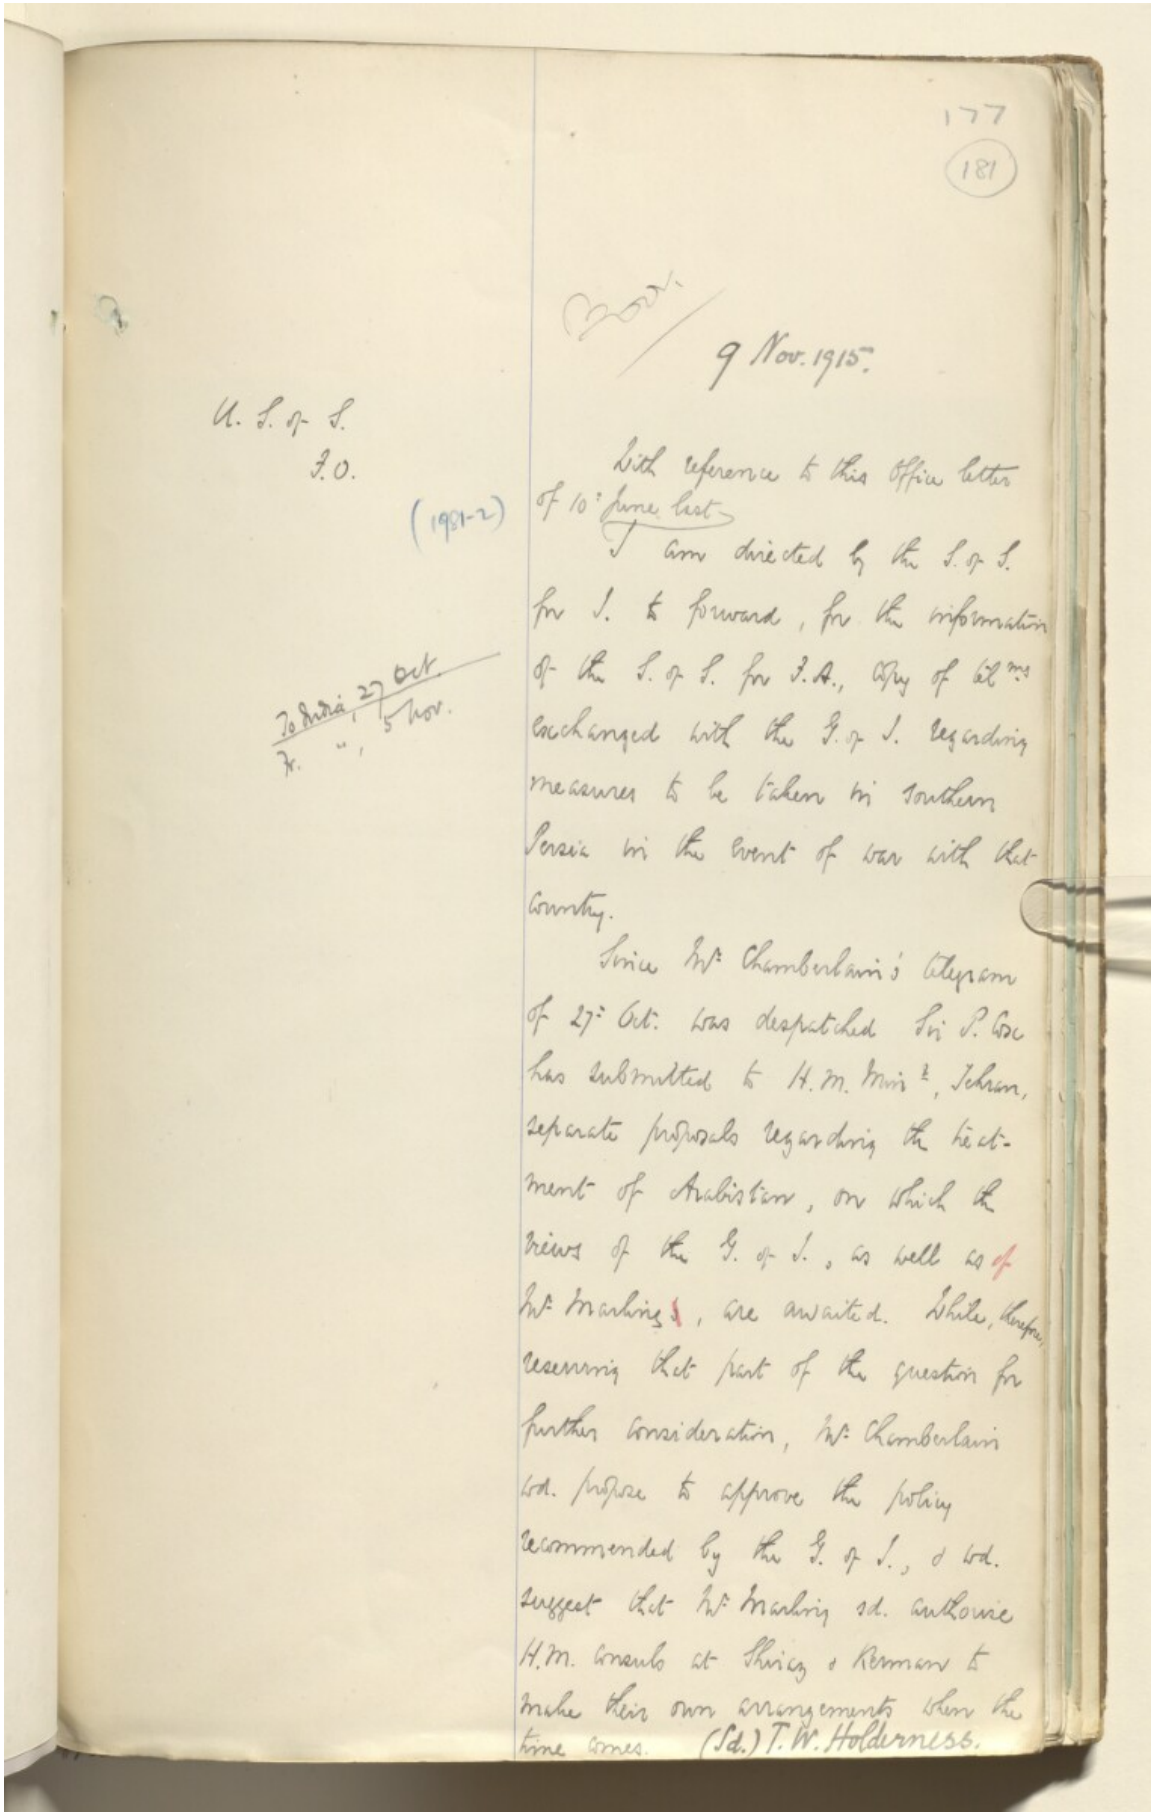 177
181
9 Nov. 1915.
U. S. of S.
F.O.
With reference to this Office letter
(1981-2)
of 10th June last
I am directed by the S. of S.
for I. to forward, for the information
To India, 27 Oct.
Fr. ", 5 Nov.
of the S. of S. for F.A., copy of telms
exchanged with the G. of I. regarding
measures to be taken in southern
Persia in the event of war with that
country.
Since Mr Chamberlain's telegram
of 27th Oct. was despatched Sir P. Cox
has submitted to H.M. Minr, Tehran,
separate proposals regarding the treat-
ment of Arabistan, on which the
views of the G. of I., as well as of
Mr Marling, are awaited. While, therefore,
reserving that part of the question for
further consideration, Mr Chamberlain
wd. propose to approve the policy
recommended by the G. of I., & wd.
suggest that Mr Marling sd. authorise
H.M. consuls at Shiraz & Kerman to
make their own arrangements when the
time comes. (Sd.) T. W. Holderness.